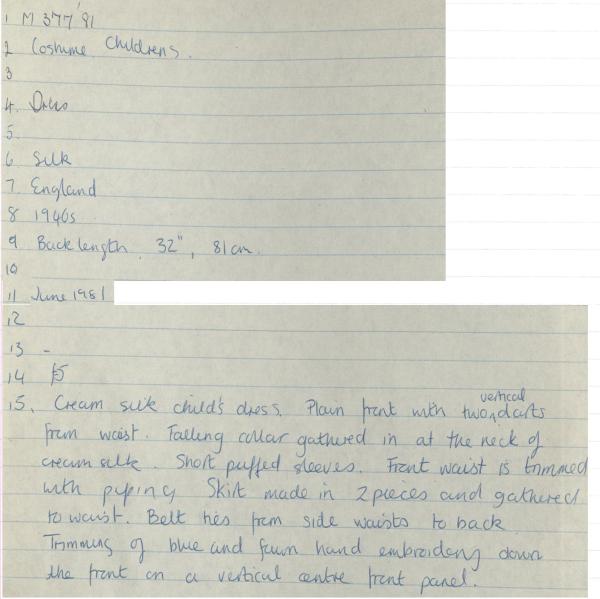 1 M 377'81
2 Costume Childrens.
3
4. Dress
5.
6 Silk
7. England
8 1940s
9 Back length. 32", 81cm.
10
11 June 1981
12
13 -
14 £5
15. Cream silk child's dress. Plain front with two vertical darts
from waist. Falling collar gathered in at the neck of
cream silk. Short puffed sleeves. Front waist is trimmed
with piping Skirt made in 2 pieces and gathered
to waist. Belt ties from side waists to back
Trimming of blue and fawn hand embroidery down
the front on a vertical centre front panel.